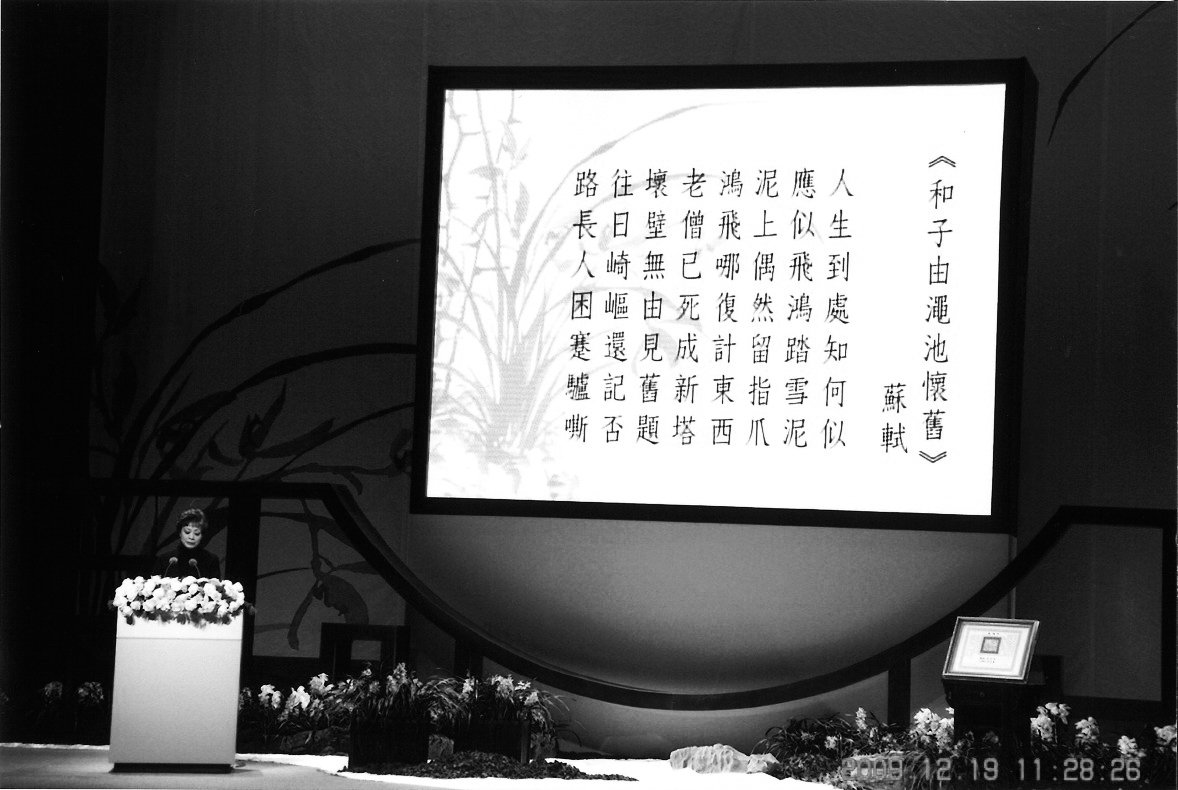 《和子由澠池懷舊》
蘇軾
人生到處知何似
應似飛鴻踏雪泥
泥上偶然留指爪
鴻飛哪復計東西
老僧已死成新塔
壞壁無由見舊題
往日崎嶇還記否
路長人困蹇驢嘶
2009.12.19 11:28:26